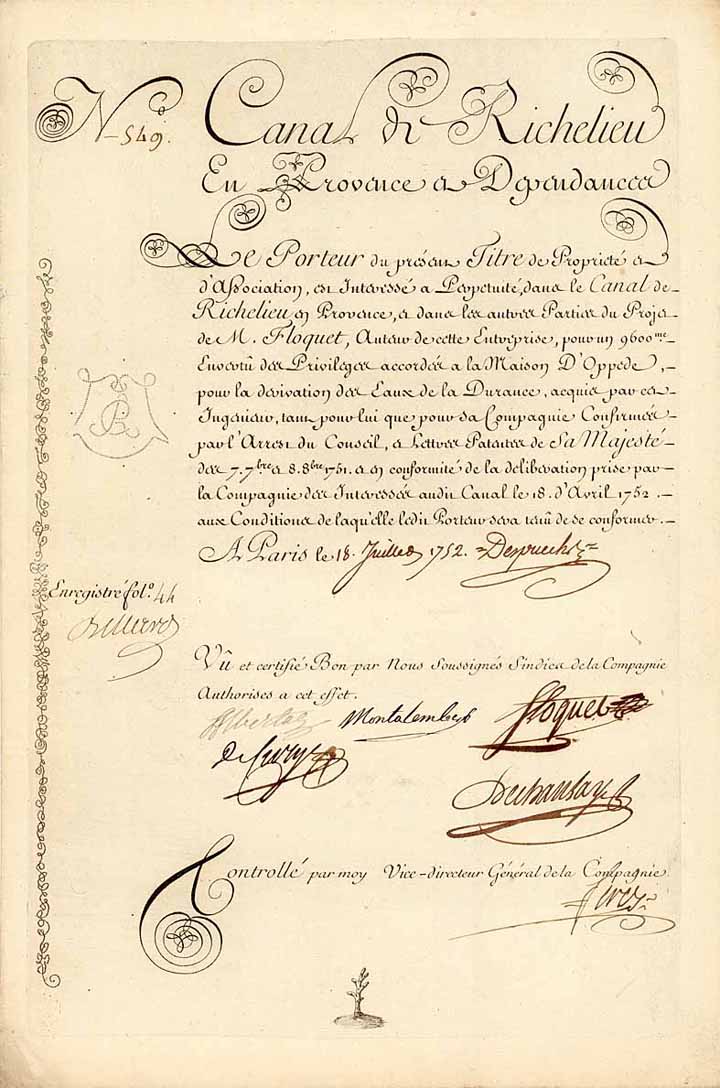 N.º 549.
Canal de Richelieu
En Provence et Dépendances
Le Porteur du présent Titre de Proprieté et
d'Association, est Interessé a Perpetuité, dans le Canal de
Richelieu en Provence, et dans les autres Parties du Projet
de M. Floquet, Auteur de cette Entreprise, pour un 9600.me
En vertû des Privileges accordés a la Maison D'Oppede,
pour la derivation des Eaux de la Durance, acquis par cet
Ingenieur, tant pour lui que pour sa Compagnie Confirmés
par l'Arrest du Conseil, et Lettres Patentes de Sa Majesté
des 7. 7.bre et 8. 8.bre 1751. et en conformité de la deliberation prise par
la Compagnie des Interessés audit Canal le 18. d'Avril 1752.
aux Conditions de laquelle ledit Porteur sera tenû de se conformer.
A Paris le 18. Juillet 1752.
Enregistré fol.º 44
Vû et certifié Bon par Nous Soussignés Sindics de la Compagnie
Authorises a cet effet.
Montalembert Floquet
Controllé par moy Vice-directeur Général de la Compagnie